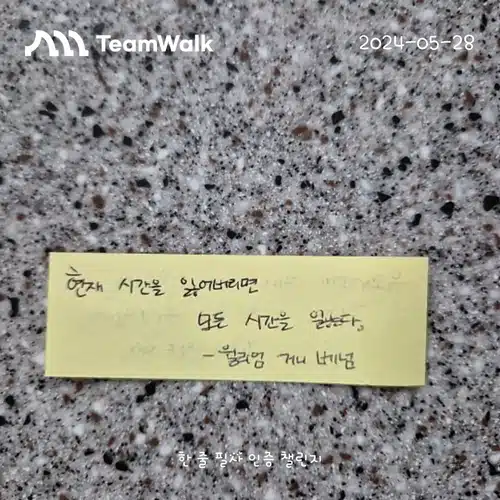 TeamWalk
2024-05-28
현재 시간을 잃어버리면
모든 시간을 잃는다.
- 윌리엄 거니 베넘
한 줄 필사 인증 챌린지